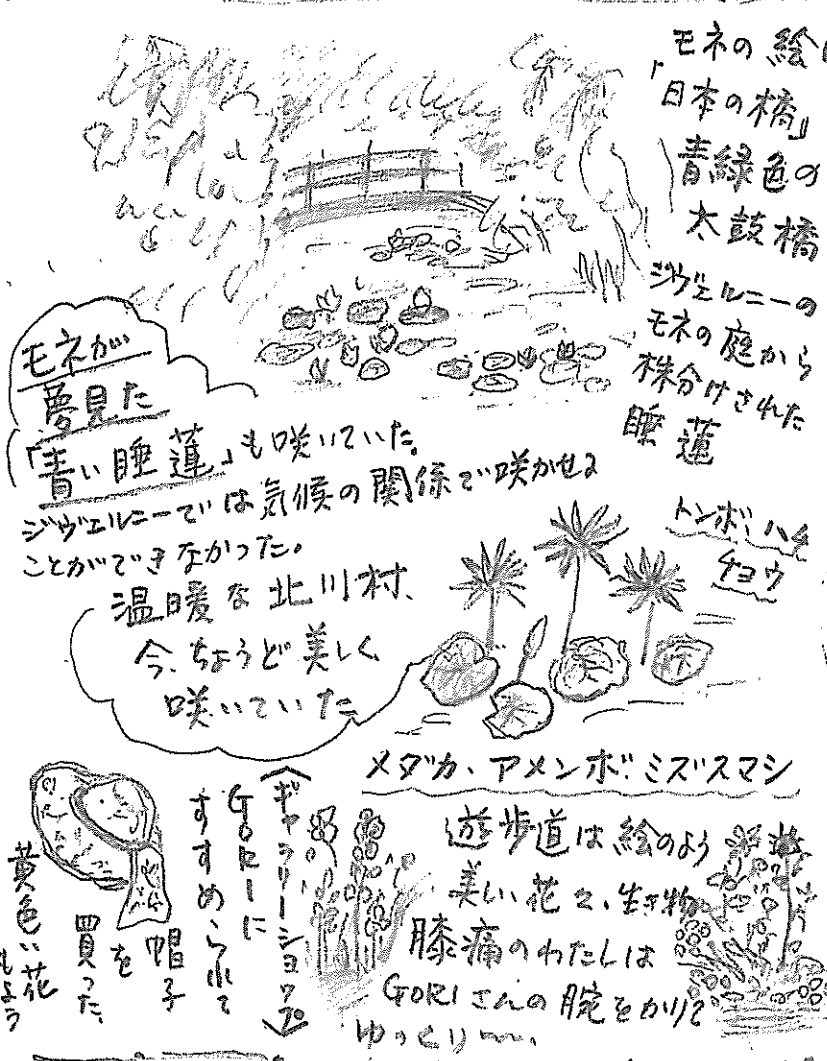 モネの絵
「日本の橋」
青緑色の
太鼓橋
ジヴェルニーの
モネの庭から
株分けされた
睡蓮
モネが
夢見た
「青い睡蓮」も咲いていた。
ジヴェルニーでは気候の関係で咲かせる
ことができなかった。
温暖な北川村、
今、ちょうど美しく
咲いていた
トンボ、ハチ
チョウ
メダカ、アメンボ、ミズスマシ
遊歩道は絵のよう
美しい花々、生き物
膝痛のわたしは
GORIさんの腕をかりて
ゆっくり〜〜、
〈ギャラリーショップ〉
GORIに
すすめられて
帽子
を
買った、
黄色い花
もよう